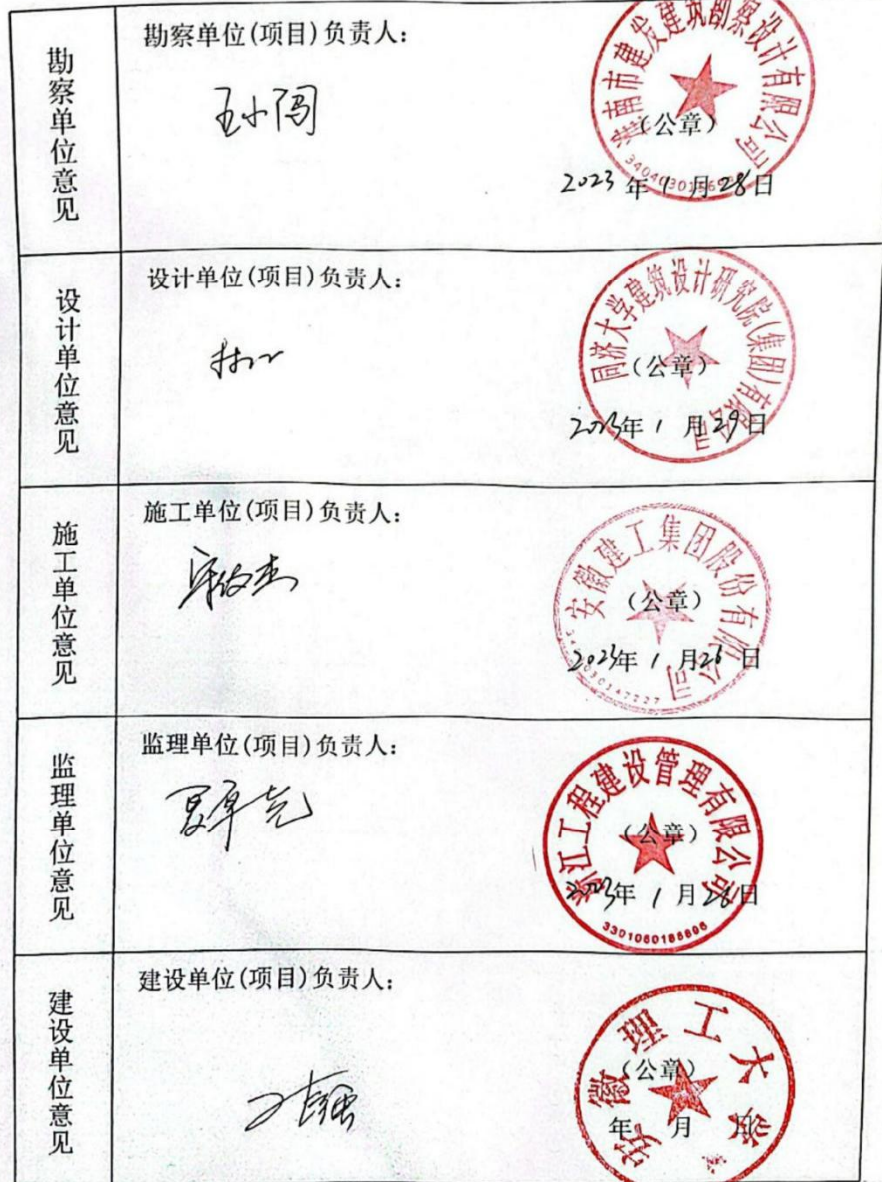 勘察单位意见
勘察单位(项目)负责人:
王小闯
淮南市建发建筑勘察设计有限公司
(公章)
2023年1月28日
设计单位意见
设计单位(项目)负责人:
同济大学建筑设计研究院(集团)有限公司
(公章)
2023年1月29日
施工单位意见
施工单位(项目)负责人:
安徽建工集团股份有限公司
(公章)
2023年1月26日
监理单位意见
监理单位(项目)负责人:
浙江工程建设管理有限公司
(公章)
2023年1月28日
3301060186696
建设单位意见
建设单位(项目)负责人:
安徽理工大学
(公章)
年 月 日